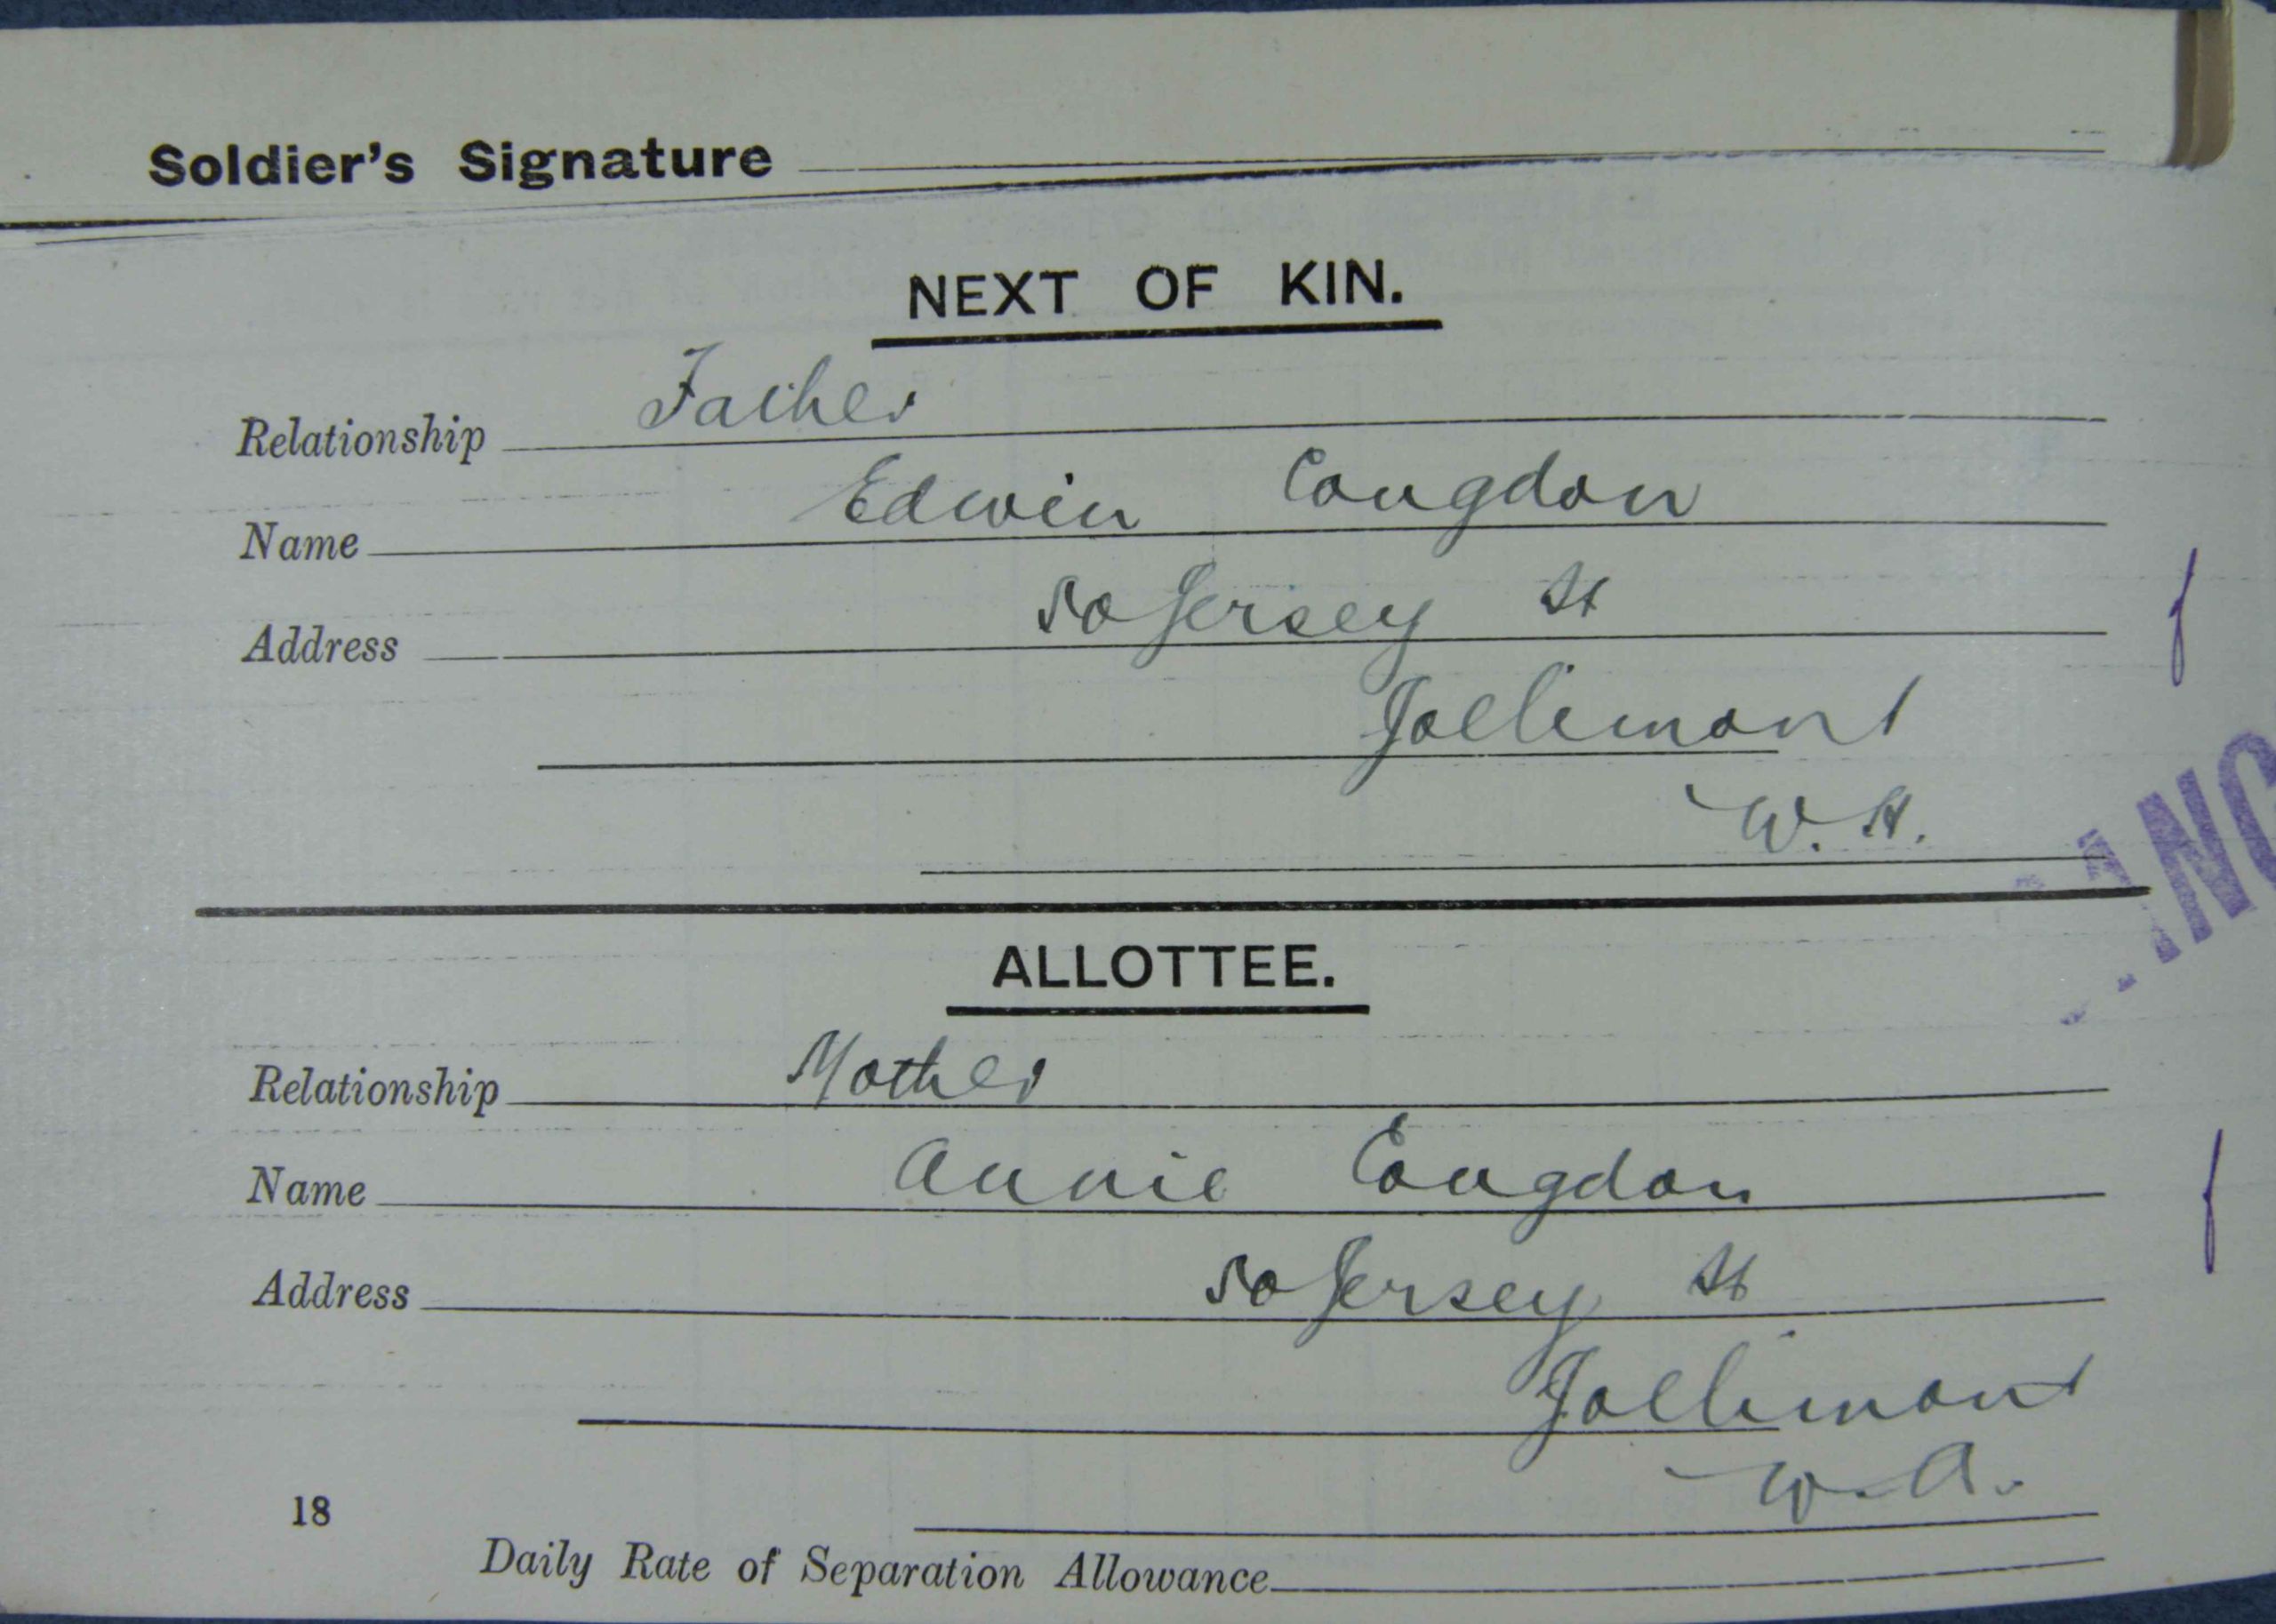 Soldier's Signature
NEXT OF KIN.
Relationship Father
Name Edwin Congdon
Address 50 Jersey St
Jollimont
W.A.
ALLOTTEE.
Relationship Mother
Name Annie Congdon
Address 50 Jersey St
Jollimont
W.A.
18
Daily Rate of Separation Allowance